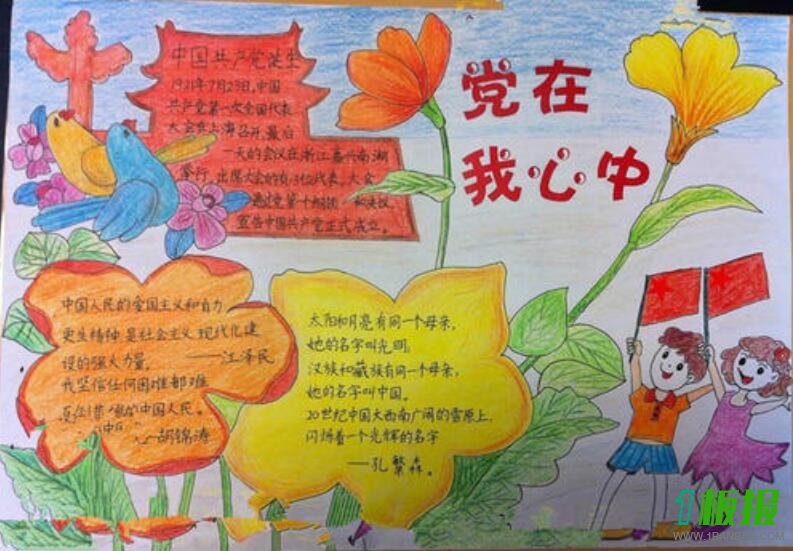 中国共产党诞生
1921年7月23日,中国
共产党第一次全国代表
大会在上海召开,最后
一天的会议在浙江嘉兴南湖
举行。出席大会的有13位代表。大会
通过党第十纲领 和决议,
宣告中国共产党正式成立。
党在
我心中
中国人民的爱国主义和自力
更生精神是社会主义现代化建
设的强大力量。
——江泽民
我坚信任何困难都难
的中国人民。
胡锦涛
太阳和月亮有同一个母亲,
她的名字叫光明,
汉族和藏族有同一个母亲,
她的名字叫中国。
20世纪中国大西南广阔的雪原上,
闪烁着一个光辉的名字
——孔繁森。
1板报